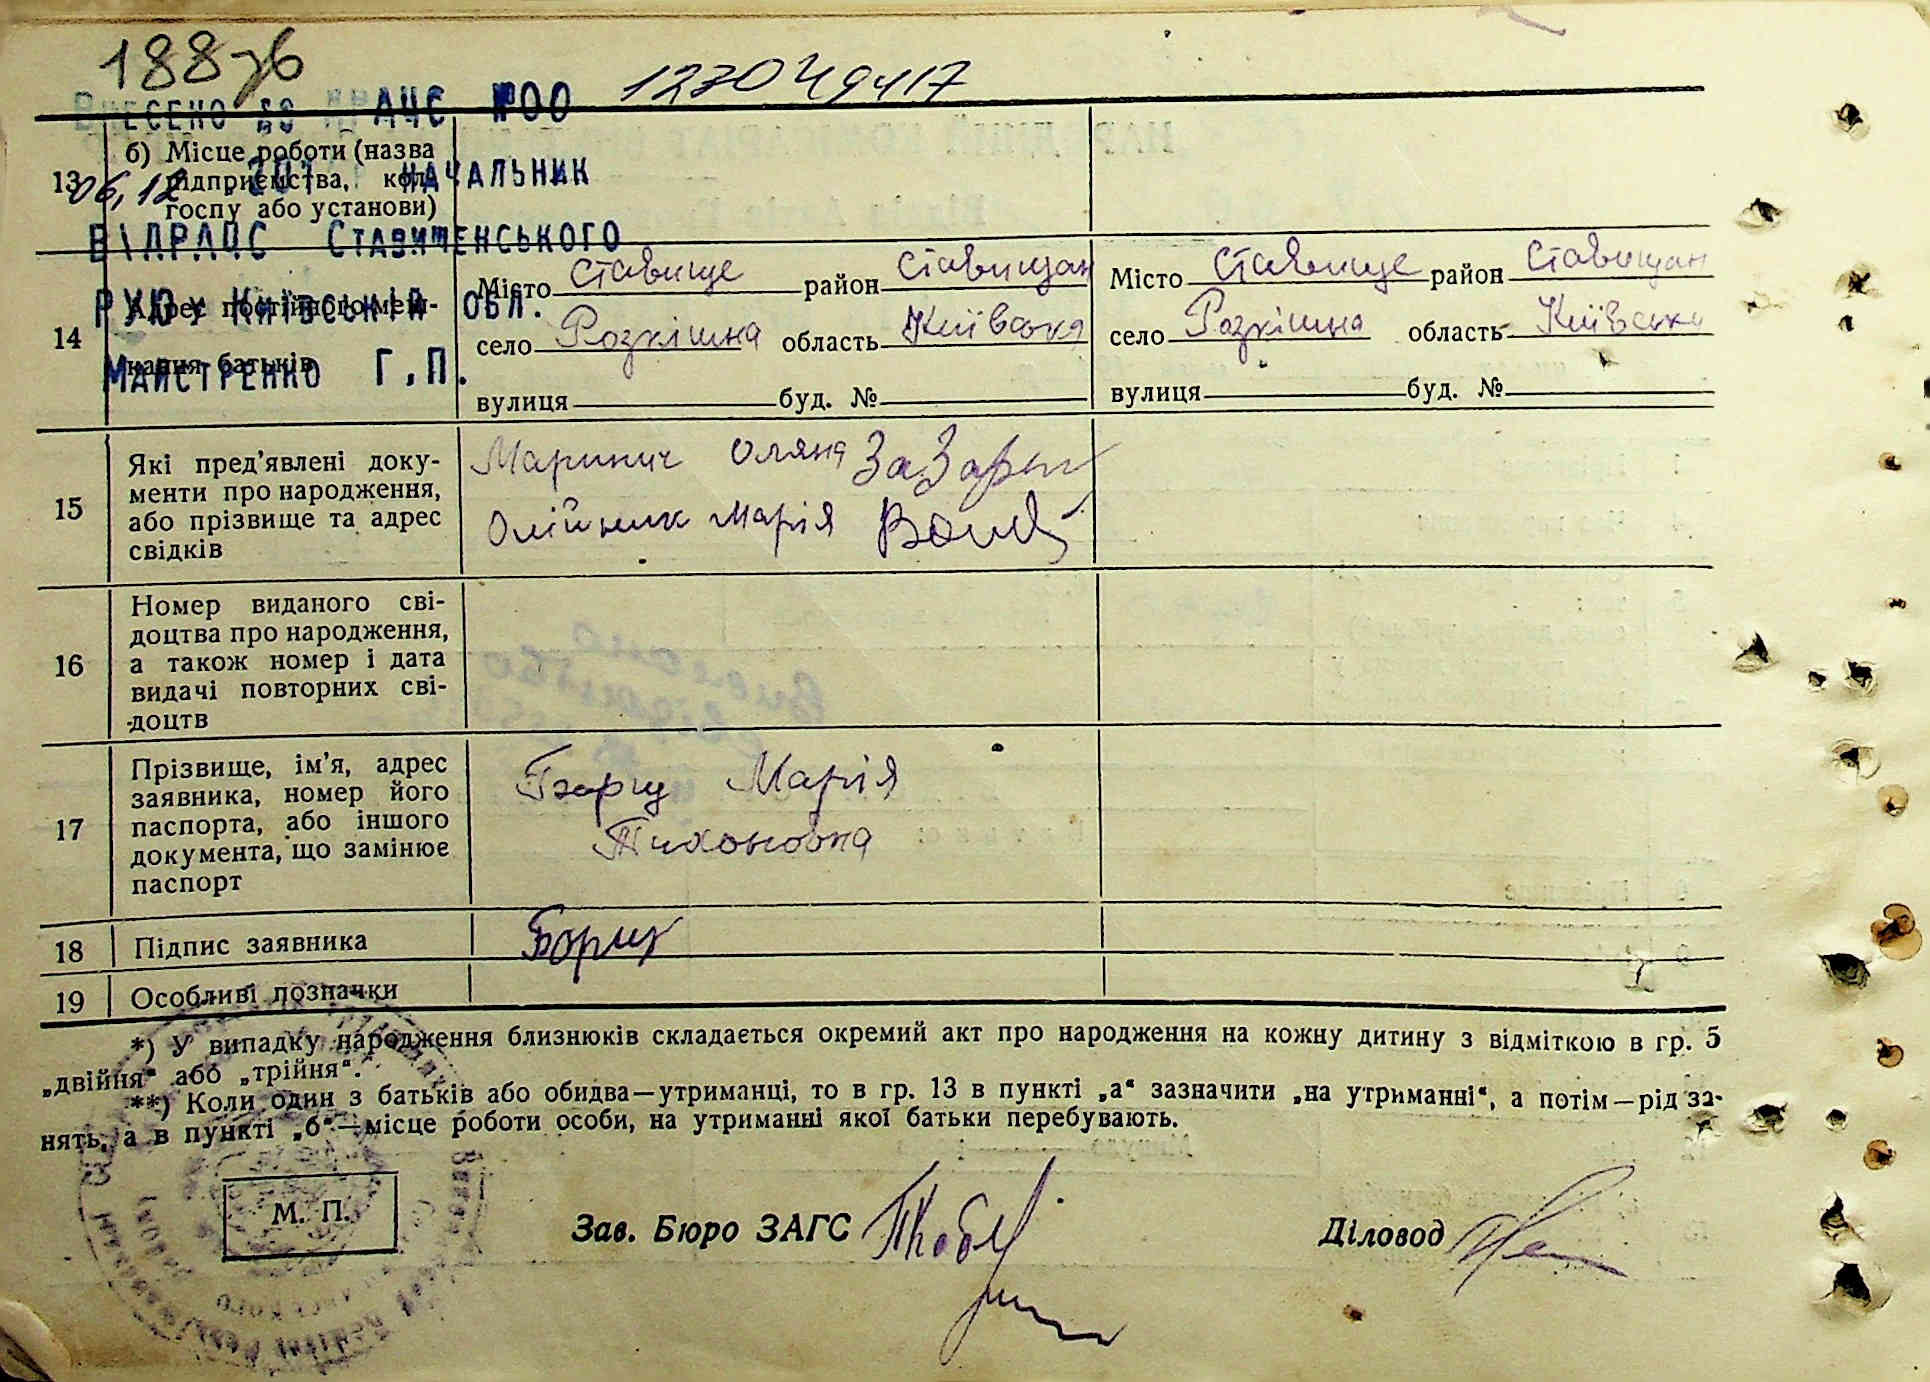 188зб
Внесено до ДРАЦС №00 123049417
13 б) Місце роботи (назва
підприємства, кол-
госпу або установи)
06,12 201 Начальник
ВДРАЦС Ставищенського
РУЮ у Київській обл.
Майстренко Г.П.
14 Адрес постійного меш-
кання батьків
Місто Ставище район Ставищан Місто Ставище район Ставищан
село Розкішна область Київська село Розкішна область Київська
вулиця буд. № вулиця буд. №
15 Які пред'явлені доку-
менти про народження,
або прізвище та адрес
свідків
Маринич Оляна
Олійник Марія
16 Номер виданого сві-
доцтва про народження,
а також номер і дата
видачі повторних сві-
доцтв
17 Прізвище, ім'я, адрес
заявника, номер його
паспорта, або іншого
документа, що замінює
паспорт
Марія
Тихоновна
18 Підпис заявника
19 Особливі позначки
*) У випадку народження близнюків складається окремий акт про народження на кожну дитину з відміткою в гр. 5
„двійня“ або „трійня“.
**) Коли один з батьків або обидва—утриманці, то в гр. 13 в пункті „а“ зазначити „на утриманні“, а потім—рід за-
нять, а в пункті „б“—місце роботи особи, на утриманні якої батьки перебувають.
М. П.
Зав. Бюро ЗАГС Діловод